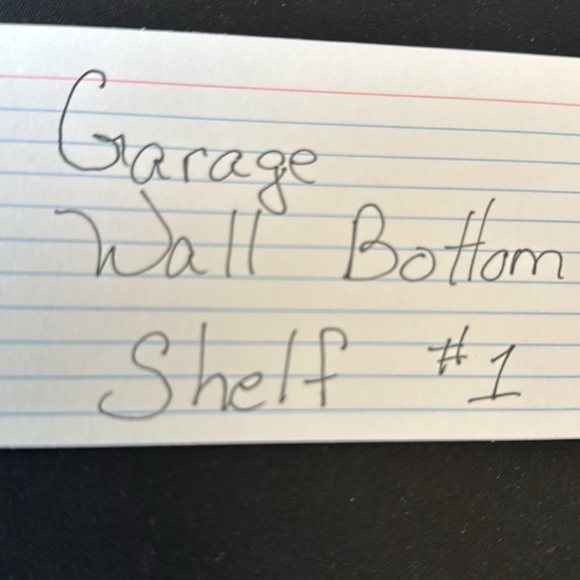 Garage
Wall Bottom
Shelf #1